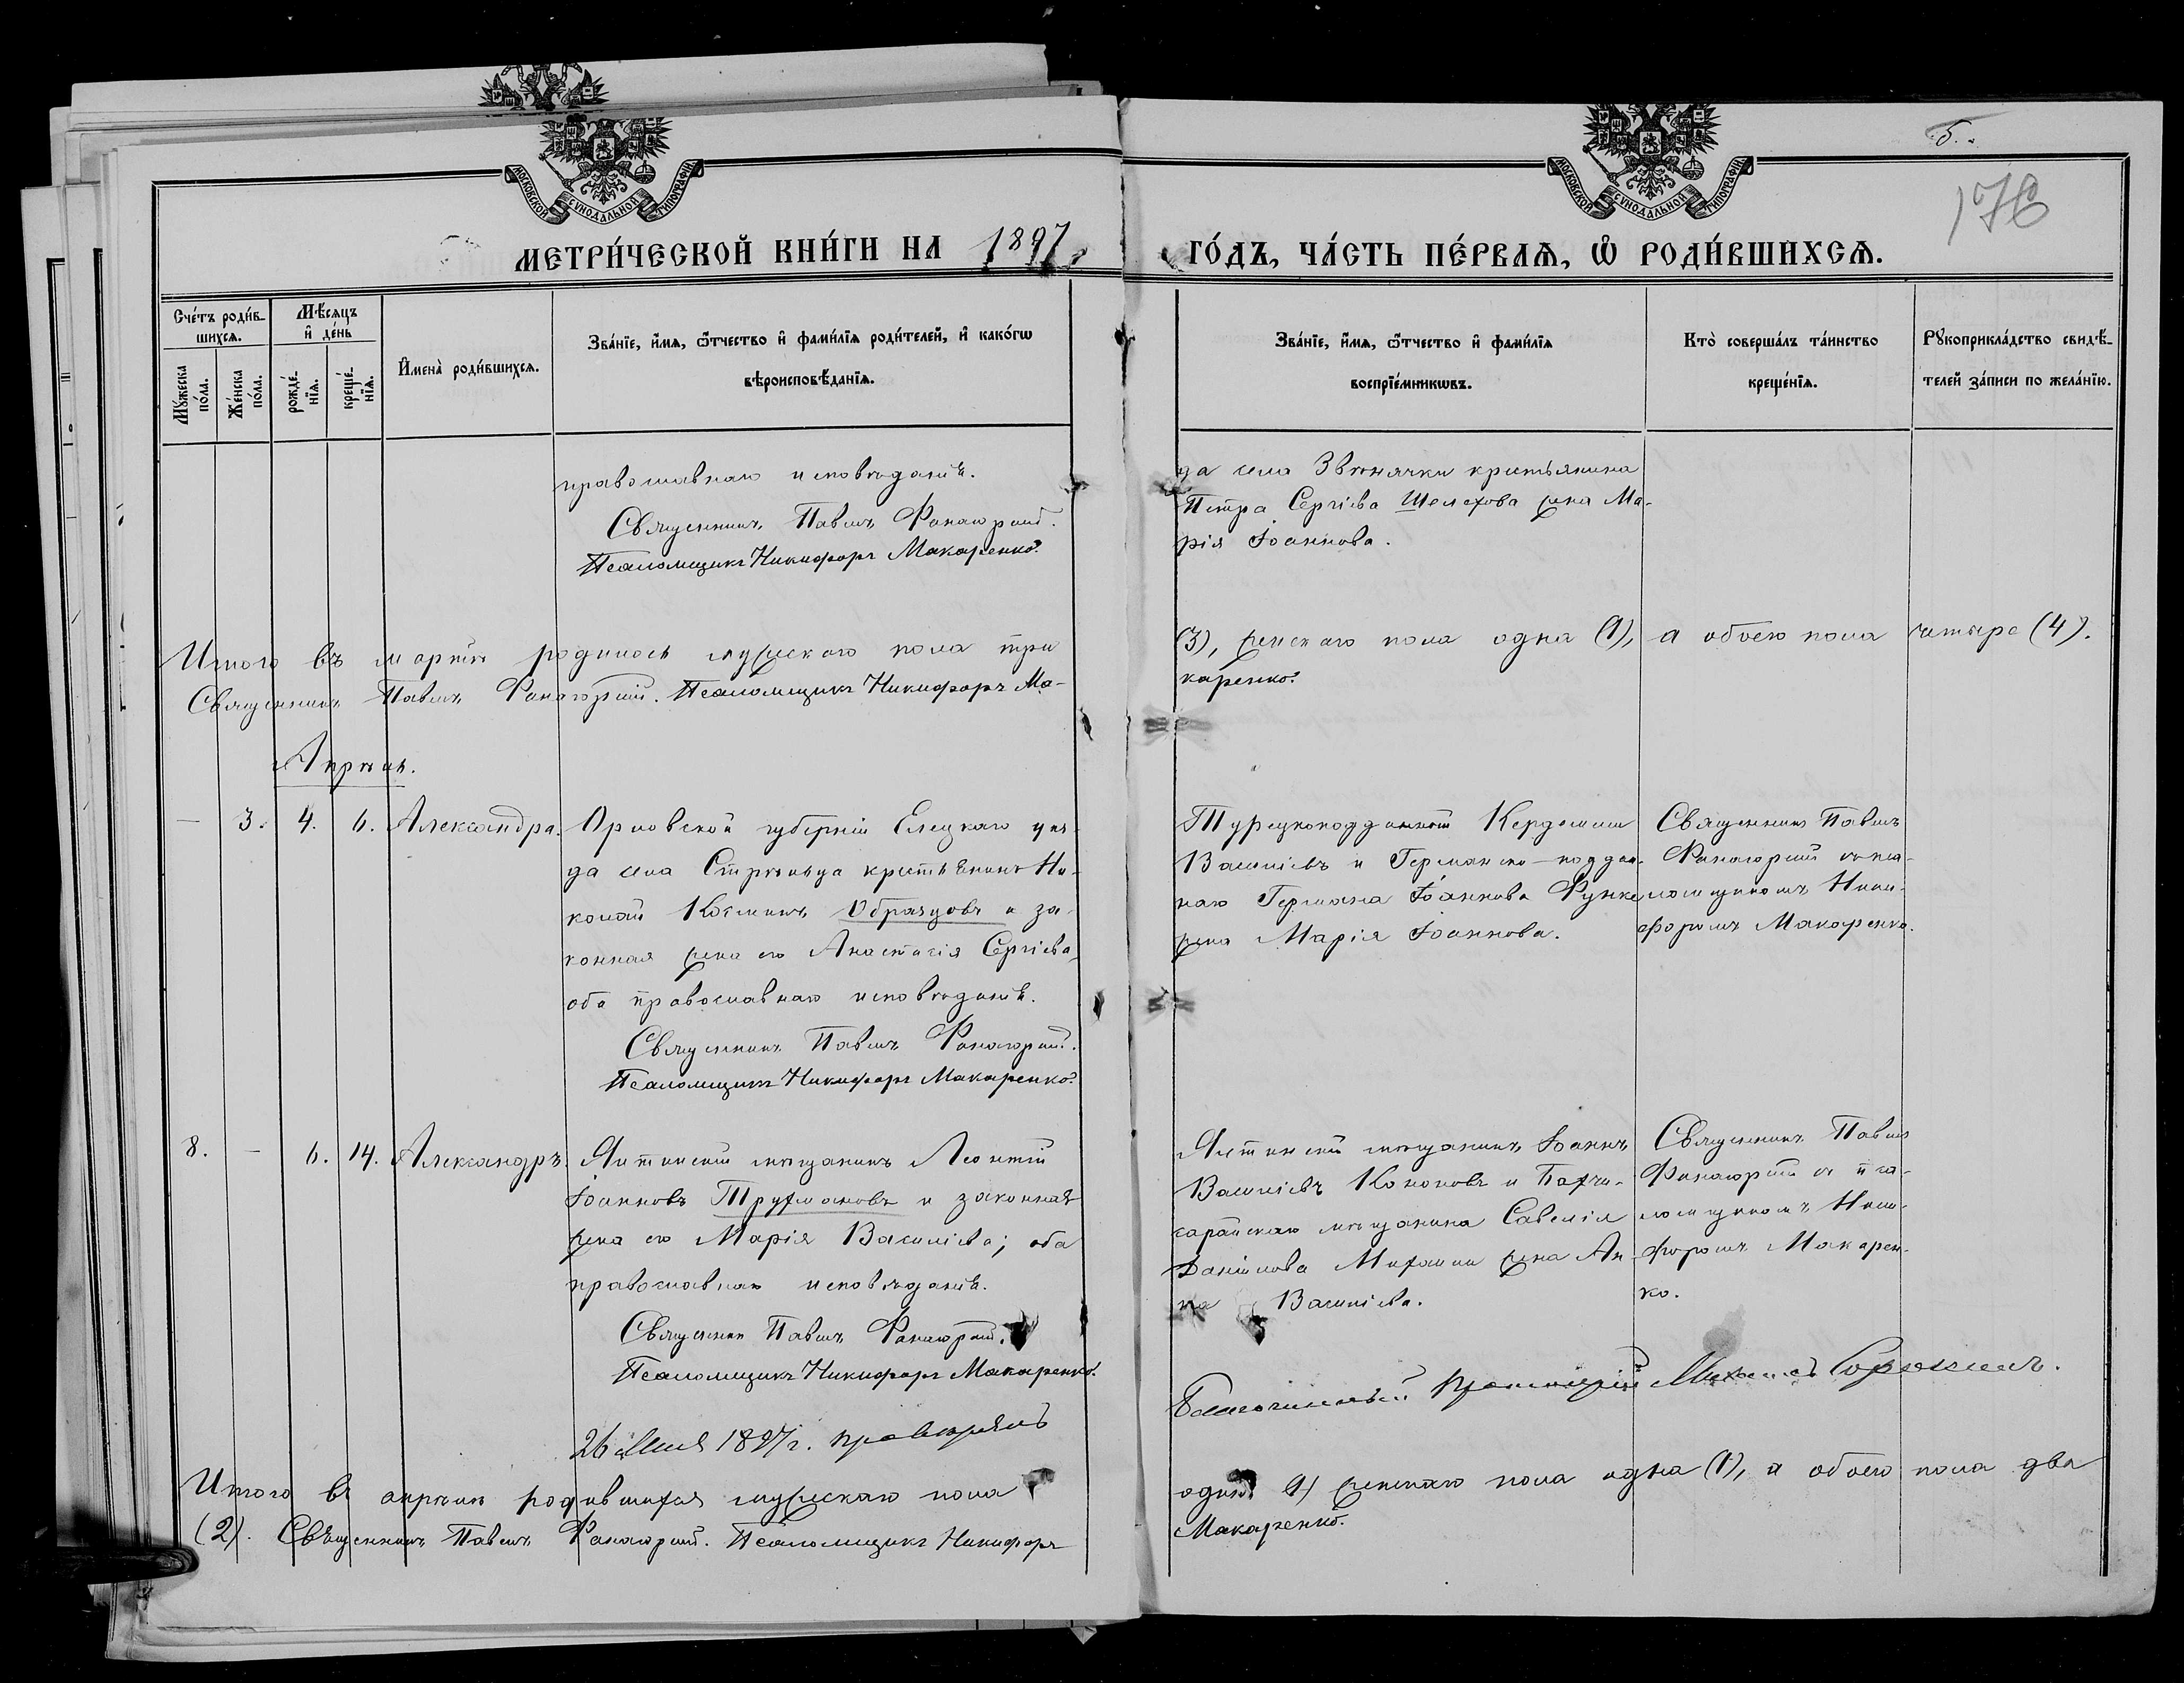 МОСКОВСКОЙ СУНОДАЛЬНОЙ ТИПОГРАФІИ
МОСКОВСКОЙ СУНОДАЛЬНОЙ ТИПОГРАФІИ
5.
176
МЕТРИ́ЧЕСКОЙ КНИ́ГИ НА 1897 ГО́ДЪ, ЧА́СТЬ ПЕ́РВАѦ, Ѡ҆ РОДИ́ВШИХСѦ.
Сче́тъ роди́в-
шихсѧ.
Мꙋ́жеска по́ла.
Же́нска по́ла.
Мѣ́сѧцъ
и҆ де́нь
рожде́-
нїѧ.
креще́-
нїѧ.
И҆мена̀ роди́вшихсѧ.
Зва́нїе, и҆́мѧ, ѻ҆́тчество и҆ фами́лїѧ роди́телей, и҆ како́гѡ
вѣроисповѣ́данїѧ.
Зва́нїе, и҆́мѧ, ѻ҆́тчество и҆ фами́лїѧ
воспрїе́мникѡвъ.
Кто̀ соверша́лъ та́инство
креще́нїѧ.
Рꙋкоприкла́дство свидѣ́-
телей за́писи по жела́нїю.
православнаго исповѣданія.
Священникъ Павелъ Фанагорскій.
Псаломщикъ Никифоръ Макаренко.
да села Звѣнячки крестьянина
Петра Сергіева Шелехова жена Ма-
рія Іоаннова.
Итого въ мартѣ родилось мужскаго пола три
Священникъ Павелъ Фанагорскій. Псаломщикъ Никифоръ Ма-
(3), женскаго пола одна (1), а обоего пола четыре (4).
каренко.
Апрѣль.
— 3. 4. 6. Александра.
Орловской губерніи Елецкаго уѣз-
да села Стрѣльца крестьянинъ Ни-
колай Космичъ Образцовъ и за-
конная жена его Анастасія Сергіева,
оба православнаго исповѣданія.
Священникъ Павелъ Фанагорскій.
Псаломщикъ Никифоръ Макаренко.
Турецкоподданный
Василіевъ и Германско-поддан-
наго Германа Іоаннова Функе
жена Марія Іоаннова.
Священникъ Павелъ
Фанагорскій съ пса-
ломщикомъ Ники-
форомъ Макаренко.
8. — 6. 14. Александръ.
Ялтинскій мѣщанинъ Леонтій
Іоанновъ Трухмановъ и законная
жена его Марія Василіева; оба
православнаго исповѣданія.
Священникъ Павелъ Фанагорскій.
Псаломщикъ Никифоръ Макаренко.
Ялтинскій мѣщанинъ Іоаннъ
Василіевъ Кононовъ и Бахчи-
сарайскаго мѣщанина Савелія
Даніилова жена Ан-
на Василіева.
Священникъ Павелъ
Фанагорскій съ пса-
ломщикомъ Ники-
форомъ Макарен-
ко.
26 Мая 1897 г. провѣрялъ
Благочинный Протоіерей Михаилъ Сорокинъ.
Итого въ апрѣлѣ родившихся мужскаго пола
(2). Священникъ Павелъ Фанагорскій. Псаломщикъ Никифоръ
одинъ (1) женскаго пола одна (1), а обоего пола два
Макаренко.